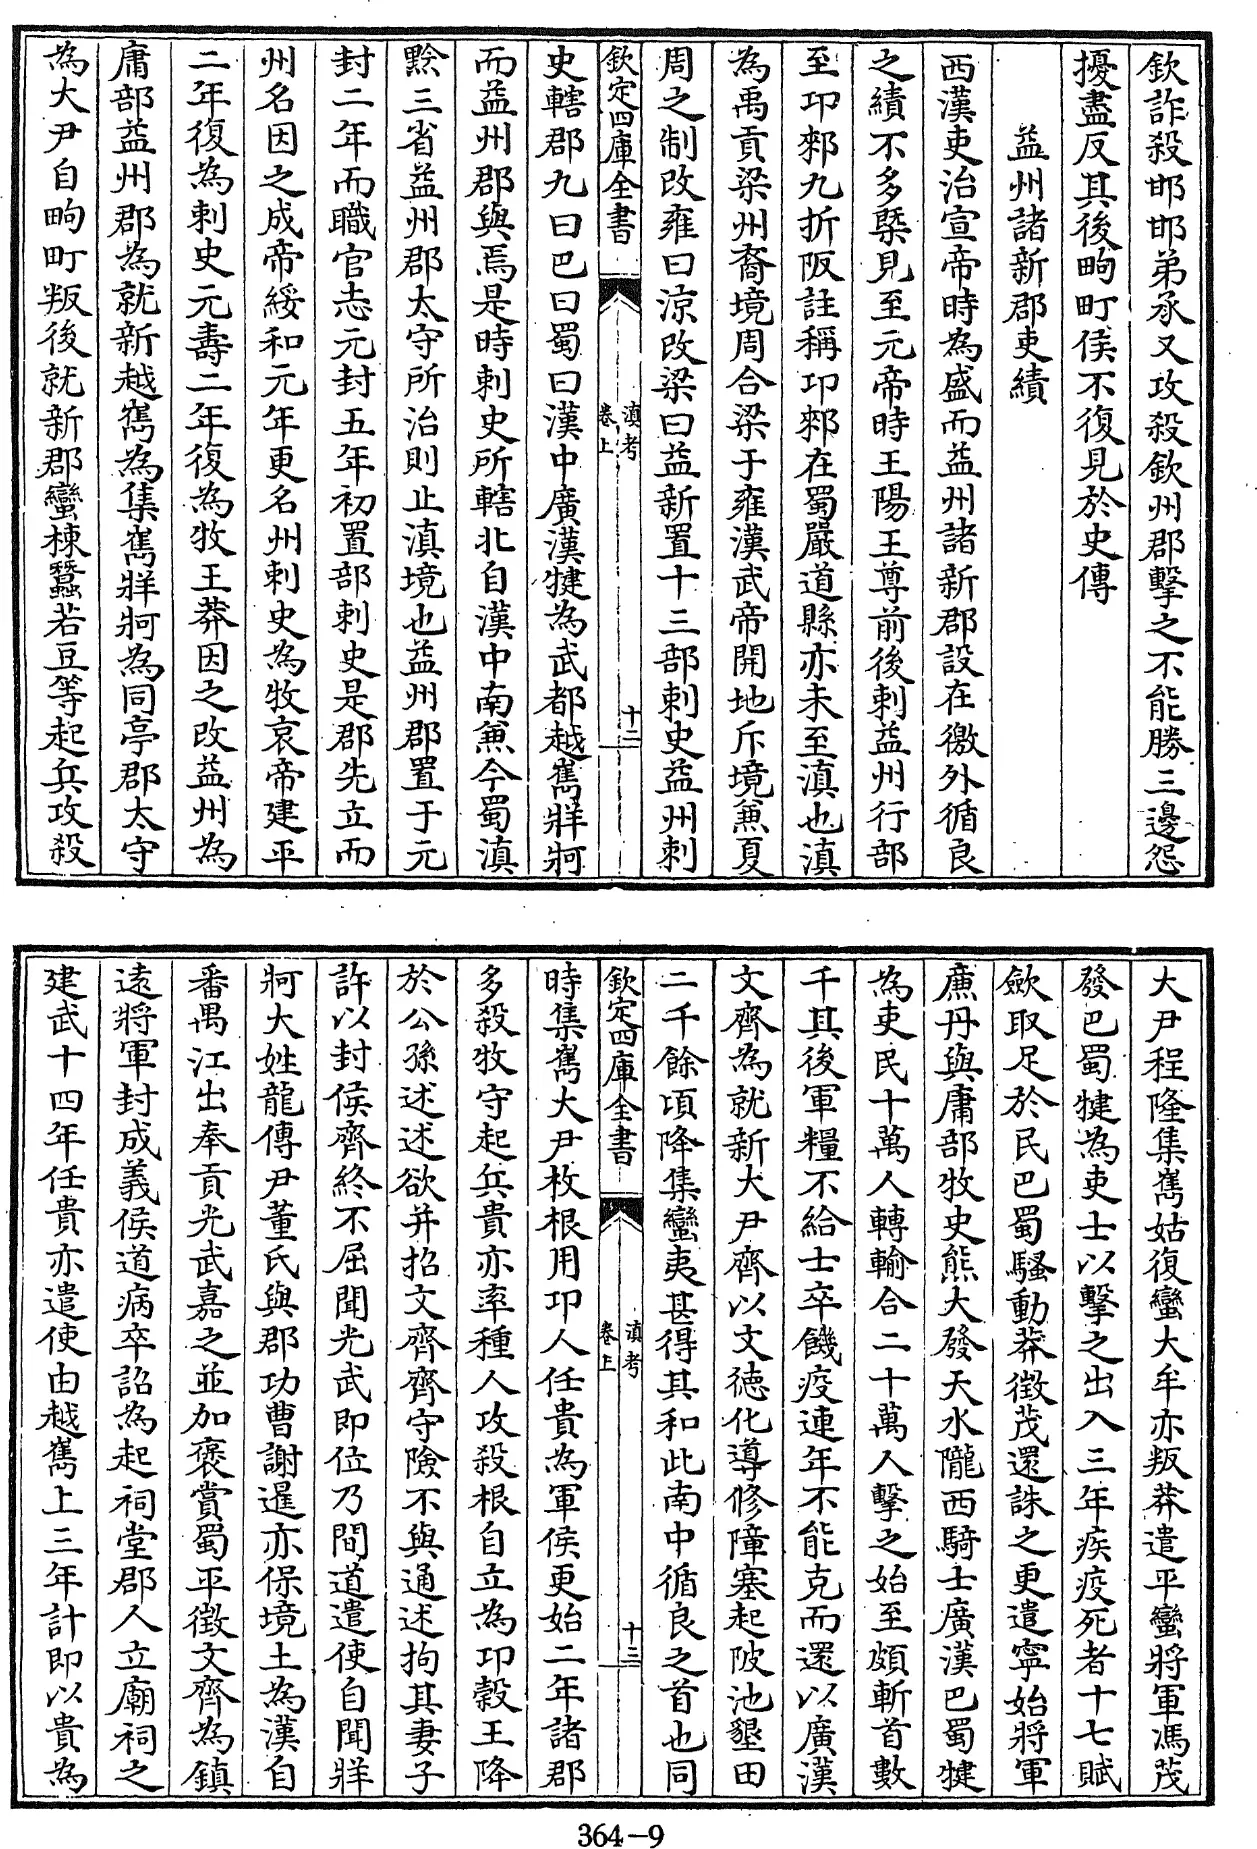 欽詐殺邯邯弟承又攻殺欽州郡擊之不能勝三邊怨
擾盡反其後呴町侯不復見於史傳
益州諸新郡吏績
西漢吏治宣帝時為盛而益州諸新郡設在徼外循良
之績不多槩見至元帝時王陽王尊前後刺益州行部
至邛郲九折阪註稱邛郲在蜀嚴道縣亦未至滇也滇
為禹貢梁州裔境周合梁于雍漢武帝開地斥境兼夏
周之制改雍曰涼改梁曰益新置十三部刺史益州刺
欽定四庫全書
滇考
卷上
十二
史轄郡九曰巴曰蜀曰漢中廣漢犍為武都越嶲牂牁
而益州郡與焉是時刺史所轄北自漢中南兼今蜀滇
黔三省益州郡太守所治則止滇境也益州郡置于元
封二年而職官志元封五年初置部刺史是郡先立而
州名因之成帝綏和元年更名州刺史為牧哀帝建平
二年復為刺史元壽二年復為牧王莽因之改益州為
庸部益州郡為就新越嶲為集嶲牂牁為同亭郡太守
為大尹自呴町叛後就新郡蠻棟蠶若豆等起兵攻殺
大尹程隆集嶲姑復蠻大牟亦叛莽遣平蠻將軍馮茂
發巴蜀犍為吏士以擊之出入三年疾疫死者十七賦
歛取足於民巴蜀騷動莽徵茂還誅之更遣寧始將軍
廉丹與庸部牧史熊大發天水隴西騎士廣漢巴蜀犍
為吏民十萬人轉輸合二十萬人擊之始至頗斬首數
千其後軍糧不給士卒饑疫連年不能克而還以廣漢
文齊為就新大尹齊以文德化導修障塞起陂池墾田
二千餘頃降集蠻夷甚得其和此南中循良之首也同
欽定四庫全書
滇考
卷上
十三
時集嶲大尹枚根用邛人任貴為軍侯更始二年諸郡
多殺牧守起兵貴亦率種人攻殺根自立為邛穀王降
於公孫述述欲并招文齊齊守險不與通述拘其妻子
許以封侯齊終不屈聞光武即位乃間道遣使自聞牂
牁大姓龍傅尹董氏與郡功曹謝暹亦保境土為漢自
番禺江出奉貢光武嘉之並加褒賞蜀平徵文齊為鎮
遠將軍封成義侯道病卒詔為起祠堂郡人立廟祠之
建武十四年任貴亦遣使由越嶲上三年計即以貴為
364-9